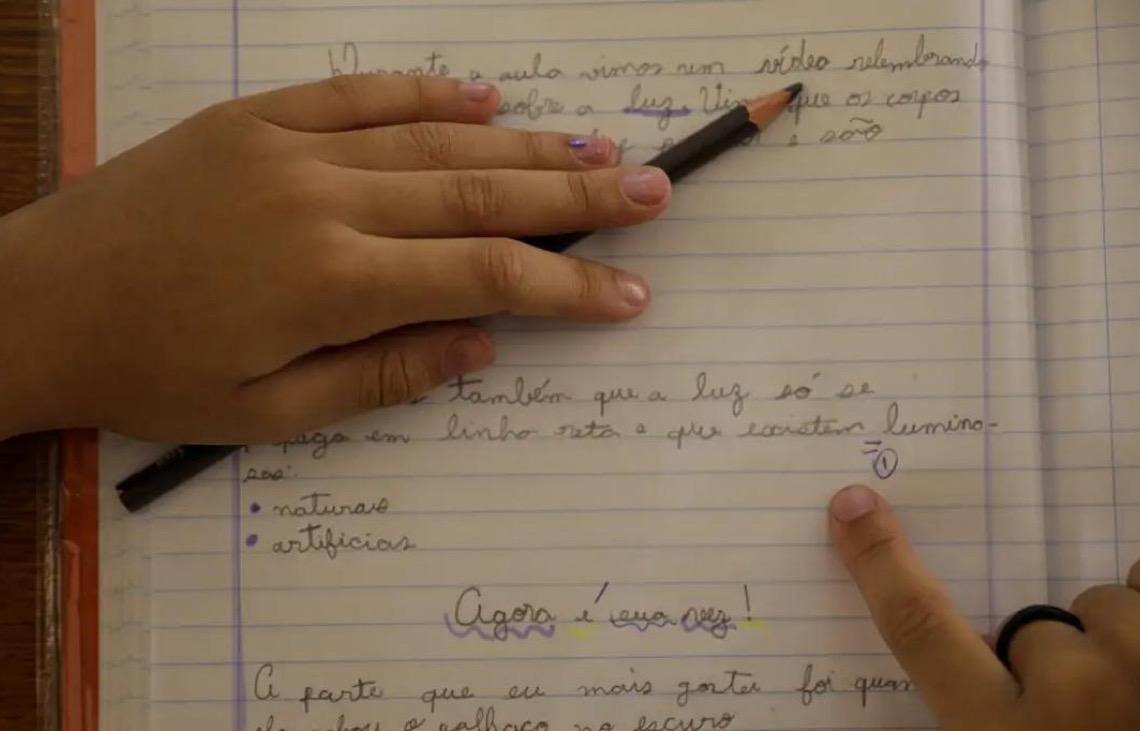 Durante a aula vimos um vídeo relembrando
sobre a luz. que os corpos
e são
também que a luz só se
em linha reta e que existem lumino-
sas:
• naturais
• artificias
①
Agora é sua vez!
A parte que eu mais gostei foi quan
o palhaço no escuro